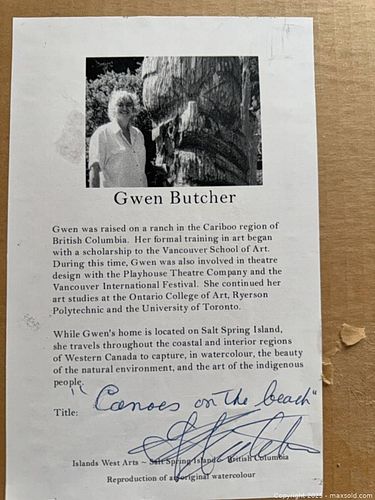 Gwen Butcher
Gwen was raised on a ranch in the Cariboo region of
British Columbia. Her formal training in art began
with a scholarship to the Vancouver School of Art.
During this time, Gwen was also involved in theatre
design with the Playhouse Theatre Company and the
Vancouver International Festival. She continued her
art studies at the Ontario College of Art, Ryerson
Polytechnic and the University of Toronto.
While Gwen's home is located on Salt Spring Island,
she travels throughout the coastal and interior regions
of Western Canada to capture, in watercolour, the beauty
of the natural environment, and the art of the indigenous
people.
Title: "Canoes on the beach"
Islands West Arts ~ Salt Spring Island British Columbia
Reproduction of an original watercolour
Copyright 2025 - maxsold.com